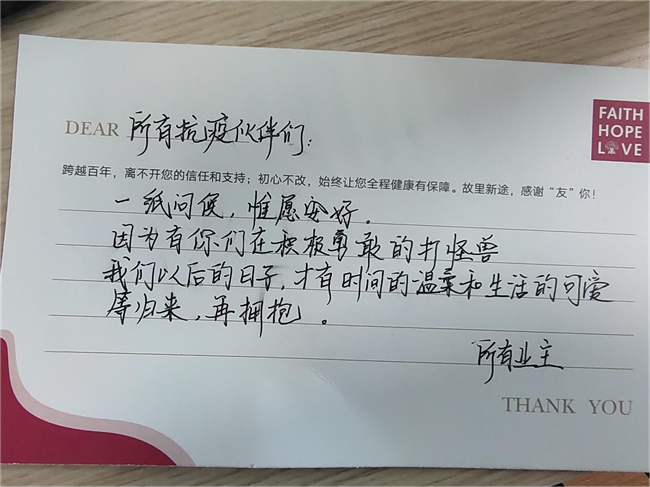 FAITH
HOPE
LOVE
DEAR 所有抗疫伙伴们:
跨越百年,离不开您的信任和支持;初心不改,始终让您全程健康有保障。故里新途,感谢“友”你!
一纸问候,惟愿安好。
因为有你们在积极勇敢的打怪兽
我们以后的日子,才有时间的温柔和生活的可爱
等归来,再拥抱。
所有业主
THANK YOU